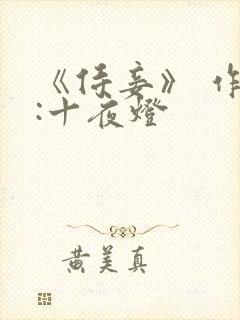 《侍妾》 作
:十夜燈
黄美真